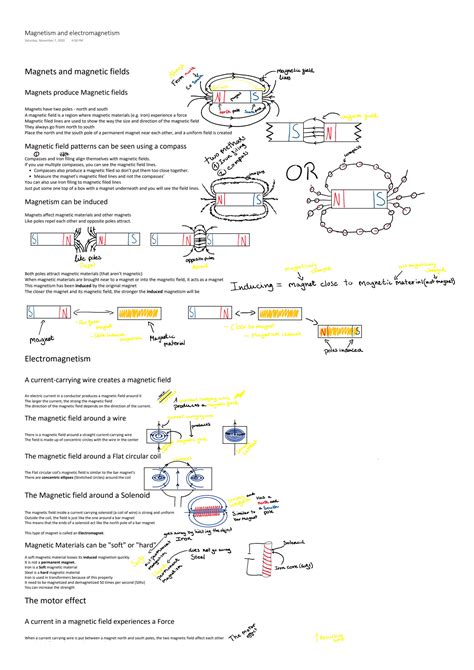 Magnetism and electromagnetism
Saturday, November 7, 2020
Magnets and magnetic fields
Magnets produce Magnetic fields
Magnets have two poles - north and south
A magnetic field is a region where magnetic materials (e.g. iron) experience a force
Magnetic filed lines are used to show the way the size and direction of the magnetic field
They always go from north to south
Place the north and the south pole of a permanent magnet near each other, and a uniform field is created
magnetic field
lines
N
magnet
S
N
S
Magnetic field patterns can be seen using a compass
Compasses and iron filing align themselves with magnetic fields.
If you use multiple compasses, you can see the magnetic field lines.
• Compasses also produce a magnetic filed so don't put them too close together.
• Measure the magnet's magnetic filed lines and not the compasses'
You can also use iron filing to magnetic filed lines
Just put some one top of a box with a magnet underneath and you will see the filed lines.
two methods
① Iron filing
② compass
N
S
OR
compass
N
S
Magnetism can be induced
Magnets affect magnetic materials and other magnets
Like poles repel each other and opposite poles attract.
S
N
N
S
S
N
S
N
like poles
opposite poles
Both poles attract magnetic materials (that aren't magnetic)
When magnetic materials are brought near to a magnet or into the magnetic field, it acts as a magnet
This magnetism has been induced by the original magnet
The closer the magnet and its magnetic field, the stronger the induced magnetism will be
Inducing = magnet close to magnetic material (not magnet)
S
N
S
N
S
N
N
S
Magnet
Magnetic
material
poles induced
Electromagnetism
A current-carrying wire creates a magnetic field
An electric current in a conductor produces a magnetic field around it
The larger the current, the strong the magnetic field
The direction of the magnetic field depends on the direction of the current.
produces a
The magnetic field around a wire
produces
There is a magnetic field around a straight current-carrying wire
The field is made up of concentric circles with the wire in the center
The magnetic field around a Flat circular coil
The Flat circular coil's magnetic field is similar to the bar magnet's
There are concentric ellipses (Stretched circles) around the coil
The Magnetic field around a Solenoid
The magnetic field inside a current carrying solenoid (a coil of wire) is strong and uniform
Outside the coil, the field is just like the one around a bar magnet
This means that the ends of a solenoid act like the north pole of a bar magnet
Similar to
bar magnet
has a
north and
a south
pole
This type of magnet is called an electromagnet.
Magnetic Materials can be "soft" or "hard"
Iron
does not go away
Steel
A soft magnetic material looses its induced magnetism quickly
It is not a permanent magnet.
Iron is a Soft magnetic material
Steel is a hard magnetic material
Iron is used in transformers because of this property
It need to be magnetized and demagnetized 50 times per second (50Hz)
You can increase the strength
Solenoid
Iron core (soft)
The motor effect
A current in a magnetic field experiences a Force
When a current carrying wire is put between a magnet north and south poles, the two magnetic field affect each other.
The motor
effect